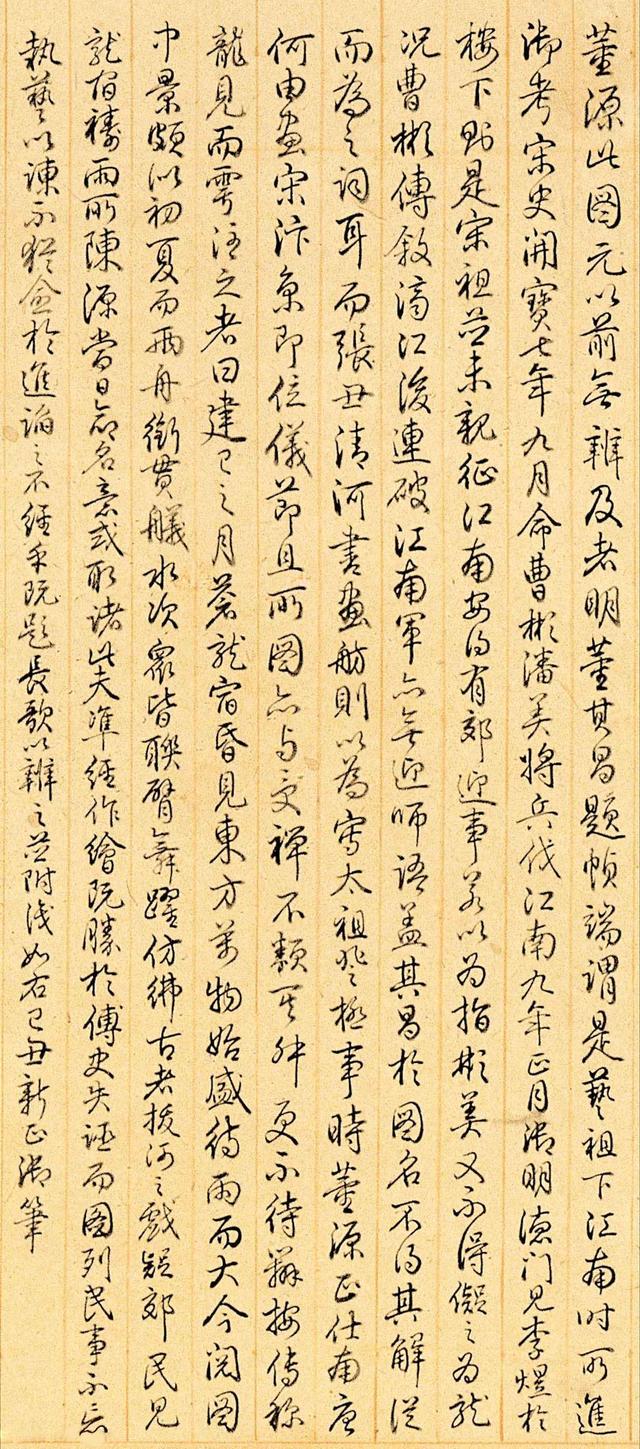 董源此图元以前無辨及者明董其昌題幀端謂是藝祖下江南时所進
御考宋史開寶七年九月命曹彬潘美将兵伐江南九年正月御明德门見李煜於
楼下則是宋祖並未親征江南安得有郊迎事若以为指彬美又不得儗之为龍
况曹彬傳敘濟江後連破江南軍亦無迎师语盖其昌於图名不得其解従
而為之词耳而張丑清河書畫舫則以為寫太祖登極事時董源正仕南唐
何由畫宋汴京即位儀節且所图亦与受禪不類 更不待辨按傳称
龍見而雩注之者曰建巳之月蒼龍宿昏見東方萬物始盛待雨而大今閲图
中景頗似初夏而两舟銜貫艤水次衆皆聯臂舞躍仿彿古者拔河之戲疑郊民見
龍宿禱雨所陳源當日命名意或取诸此夫準經作繪既勝於傅史失誣而图列民事不啻
執藝以諫不猶愈於進諂之不經乎既題長歌以辨之並附識如右己丑新正御筆